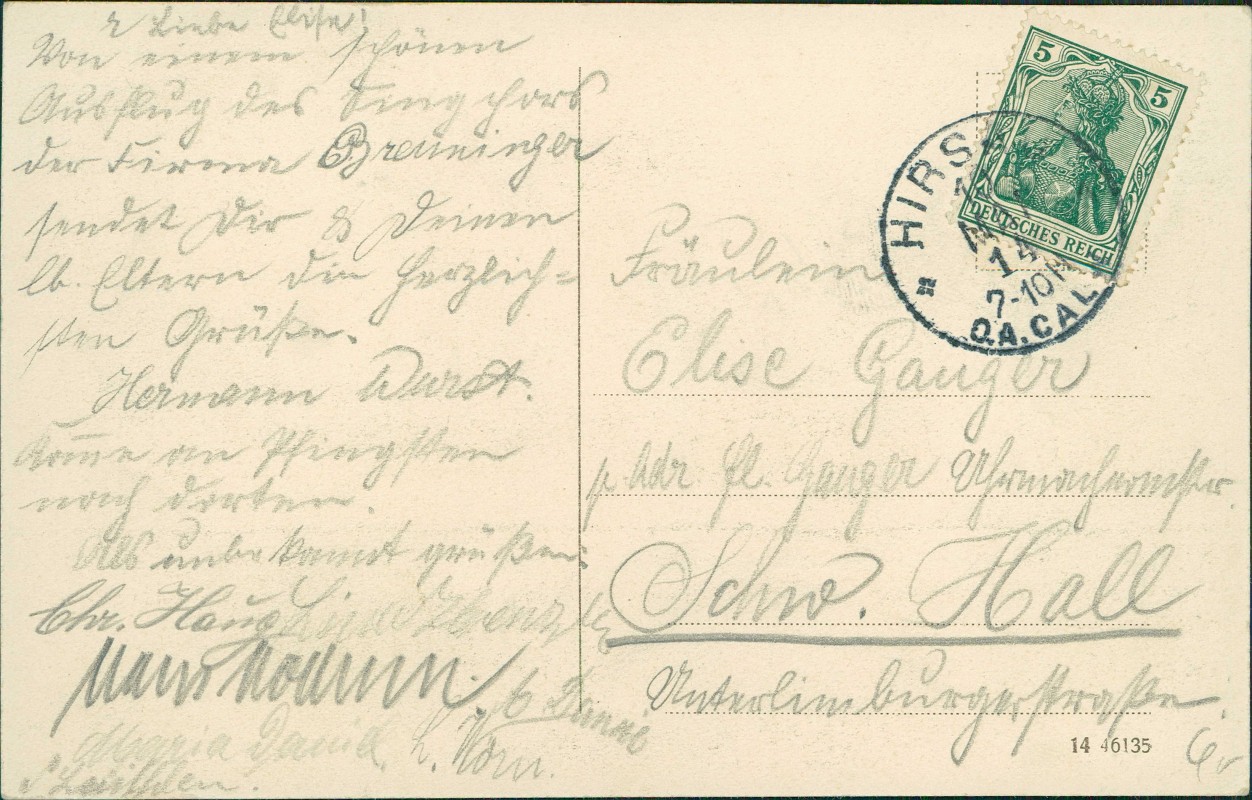 Liebe Elise!
Von einem schönen
Ausflug des Singchors
der Firma Breuninger
sendet Dir & Deinen
lb. Eltern die herzlich=
sten Grüße.
Hermann Wurst.
Kom̅e an Pfingsten
nach dorten.
Als unbekannt grüßen:
Chr. Haug
Maria David. L. Horn.
5
5
DEUTSCHES REICH
HIRS
14
7-10N
O.A. CAL
Fräulein
Elise Gauger
p. Adr. Fr. Gauger Uhrmachermstr.
Schw. Hall
Unterlimburgerstraße.
14 46135